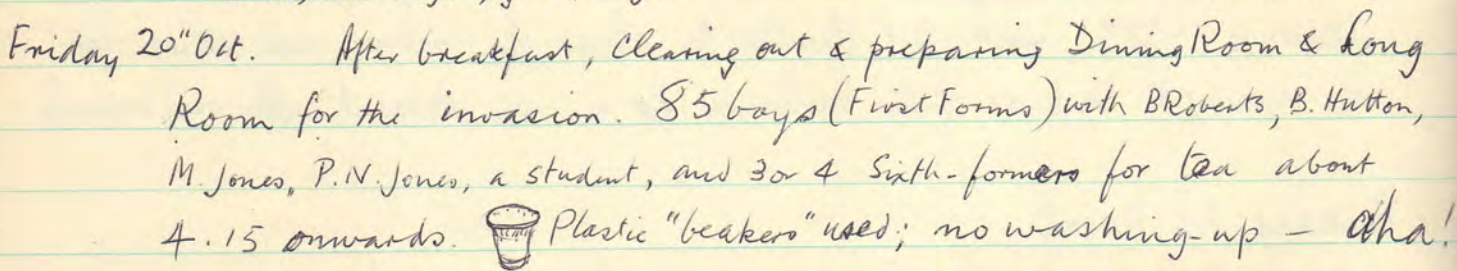 Friday 20" Oct. After breakfast, Clearing out & preparing Dining Room & Long
Room for the invasion. 85 boys (First Forms) with B Roberts, B. Hutton,
M. Jones, P.N. Jones, a student, and 3 or 4 Sixth-formers for tea about
4.15 onwards. Plastic "beakers" used; no washing-up – Aha!